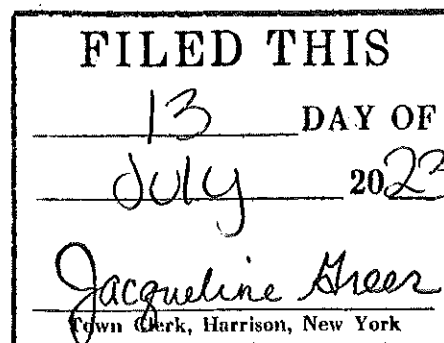 FILED THIS
13 DAY OF
July 2023
Jacqueline Greer
Town Clerk, Harrison, New York